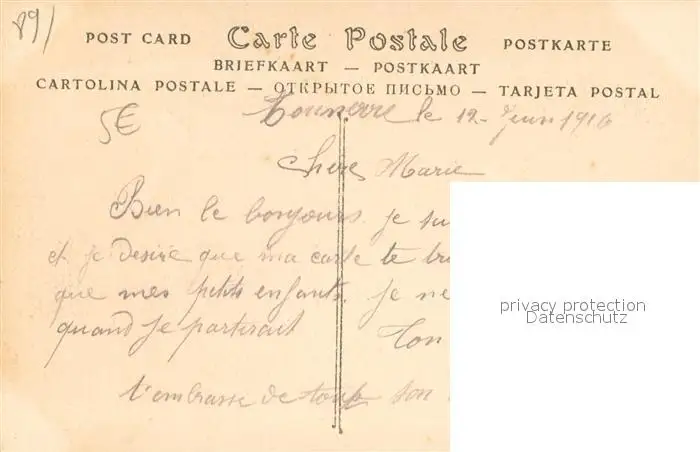 89/
POST CARD Carte Postale POSTKARTE
BRIEFKAART — POSTKAART
CARTOLINA POSTALE — ОТКРЫТОЕ ПИСЬМО — TARJETA POSTAL
5€
Tonnerre le 12 - Juin 1916
Chere Marie
Bien le bonjours. je su
et je desire que ma carte te
que mes petits enfants. je ne
quand je partirait
Ton
t'embrasse de ton
privacy protection
Datenschutz